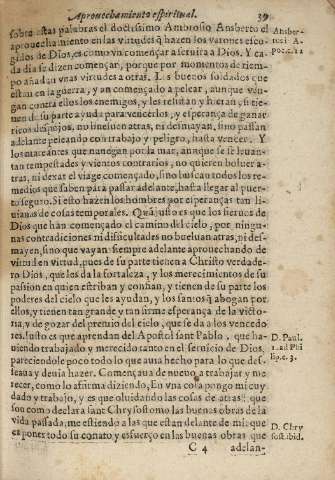 Aprouechamiento espiritual. 39
sobre estas palabras el doctissimo Ambrosio Ansberto el
aprouechamiento en las virtudes q̃ hazen los varones esco-
gidos de Dios, es como vn començar a seruir a Dios. Y ca-
da dia se dizen començar, porque por momentos de tiem-
po añaden vnas virtudes a otras. Los buenos soldados que
estan en la guerra, y an començado a pelear, aunque ven-
gan contra ellos los enemigos, y les resistan y hieran, si tie-
nen de su parte ayuda para vencerlos, y esperança de ganar
ricos despojos, no bueluen atras, ni desmayan, sino passan
adelante peleando con trabajo y peligro, hasta vencer. Y
los mareantes que nauegan por la mar, aunque se le leuan-
tan tempestades y vientos contrarios, no quieren boluer a-
tras, ni dexar el viage començado, sino buscan todos los re-
medios que saben para passar adelante, hasta llegar al puer-
to seguro. Si esto hazen los hombres por esperanças tan li-
uianas de cosas temporales. Quã justo es que los sieruos de
Dios que han començado el camino del cielo, por ningu-
nas contradiciones ni dificultades no bueluan atras, ni des-
mayen, sino que vayan siempre adelante aprouechando de
virtud en virtud, pues de su parte tienen a Christo verdade-
ro Dios, que les da la fortaleza, y los merecimientos de su
passion en quien estriban y confian, y tienen de su parte los
poderes del cielo que les ayudan, y los santos q̃ abogan por
ellos, y tienen tan grande y tan firme esperança de la victo-
ria, y de gozar del premio del cielo, que se da a los vencedo-
res. Iusto es que aprendan del Apostol sant Pablo, que ha-
uiendo trabajado y merecido tanto en el seruicio de Dios,
pareciendole poco todo lo que auia hecho para lo que des-
seaua y deuia hazer. Començaua de nueuo a trabajar y me-
recer, como lo afirma diziendo, En vna cosa pongo mi cuy-
dado y trabajo, y es que oluidando las cosas de atras: que
son como declara sant Chrysostomo las buenas obras de la
vida passada, me estiendo a las que estan delante de mi: que
es poner todo su conato y esfuerço en las buenas obras que
C 4 adelan-
Ansber-
tus in A-
poc.c.
D. Paul.
ad Phi
lip.c. 3.
D. Chry
sost. ibid.